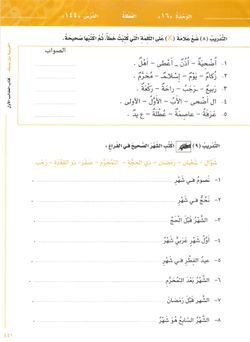 الوحدة «١٦» العطلة الدرس «١٤٤»
التدريب (٨) ضع علامة (X) على الكلمة التي كُتبت خطأ، ثم اكتبها صحيحة.
الصواب
١- أضحية - أذن - أعطى - اهل.
٢- زكام - يوم - إسلام - محرم.
٣- ربيع - رجب - راحة - ركعة.
٤- ال أضحى - الأب - الأول - الأولى.
٥- غرفة - عاصمة - عطلة - ع يد.
التدريب (٩) اكتب الشهر الصحيح في الفراغ.
شوال - شعبان - رمضان - ذي الحجة - المحرم - صفر - ذو القعدة - رجب
١- نصوم في شهر
٢- نحج في شهر
٣- الشهر قبل الحج
٤- أول شهر عربي شهر
٥- عيد الفطر في شهر
٦- الشهر بعد المحرم
٧- الشهر قبل رمضان
٨- الشهر السابع هو شهر
٤٤١